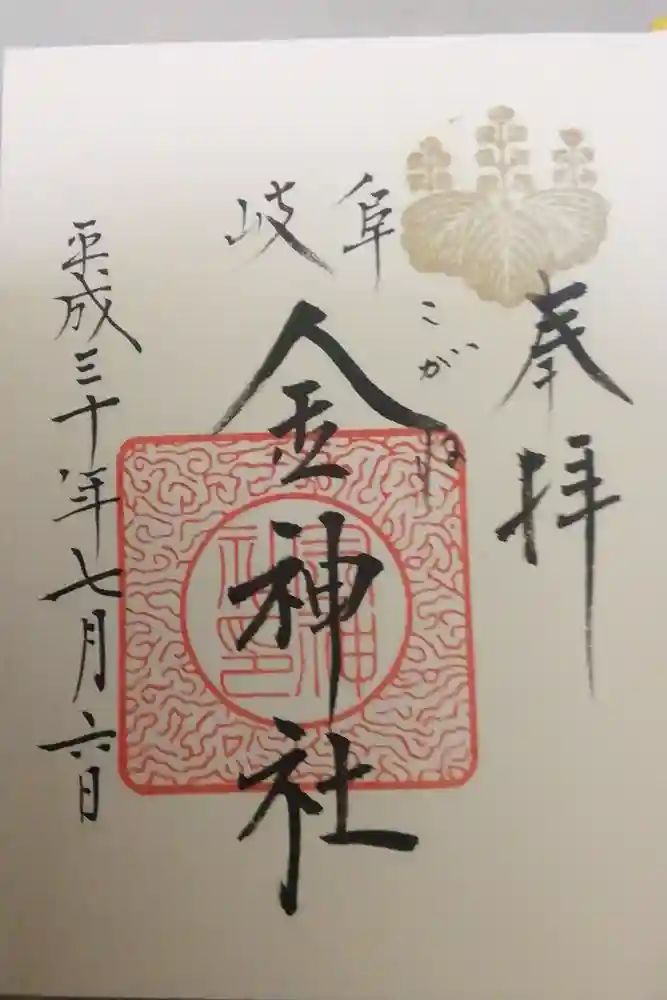 奉拝
岐阜
こがね
金神社
金神社印
平成三十年七月六日